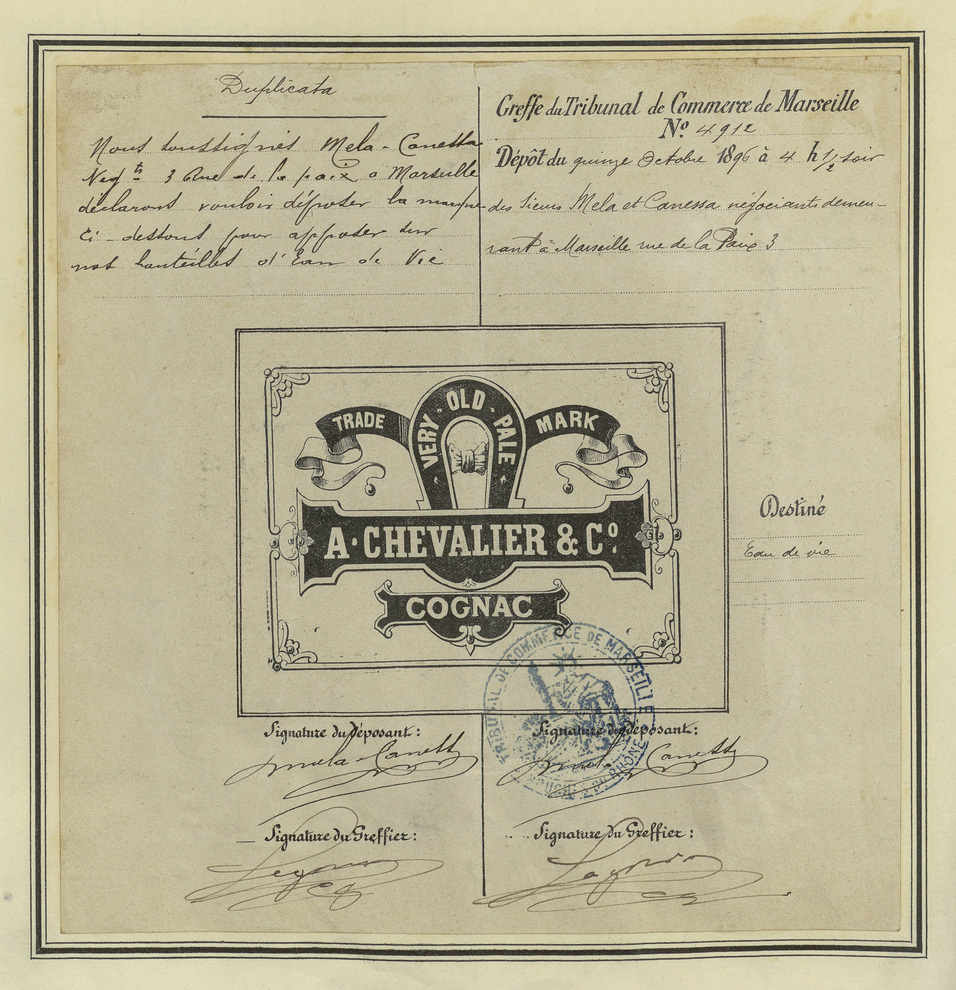 Duplicata
Nous soussignés Mela-Canessa
Negts 3 Rue de la paix a Marseille
déclarons vouloir déposer la marque
ci-dessous pour apposer sur
nos bouteilles d'Eau de Vie
Greffe du Tribunal de Commerce de Marseille
No. 4912
Dépôt du quinze Octobre 1896 à 4 h 1/2 soir
des Sieurs Mela et Canessa négociants demeu-
rant à Marseille rue de la Paix 3
TRADE MARK
VERY · OLD · PALE
A · CHEVALIER & Co.
COGNAC
Destiné
Eau de vie
TRIBUNAL DE COMMERCE DE MARSEILLE
BOUCHES DU RHÔNE
Signature du déposant :
Mela-Canessa
Signature du déposant :
Canessa
Signature du Greffier :
Signature du Greffier :